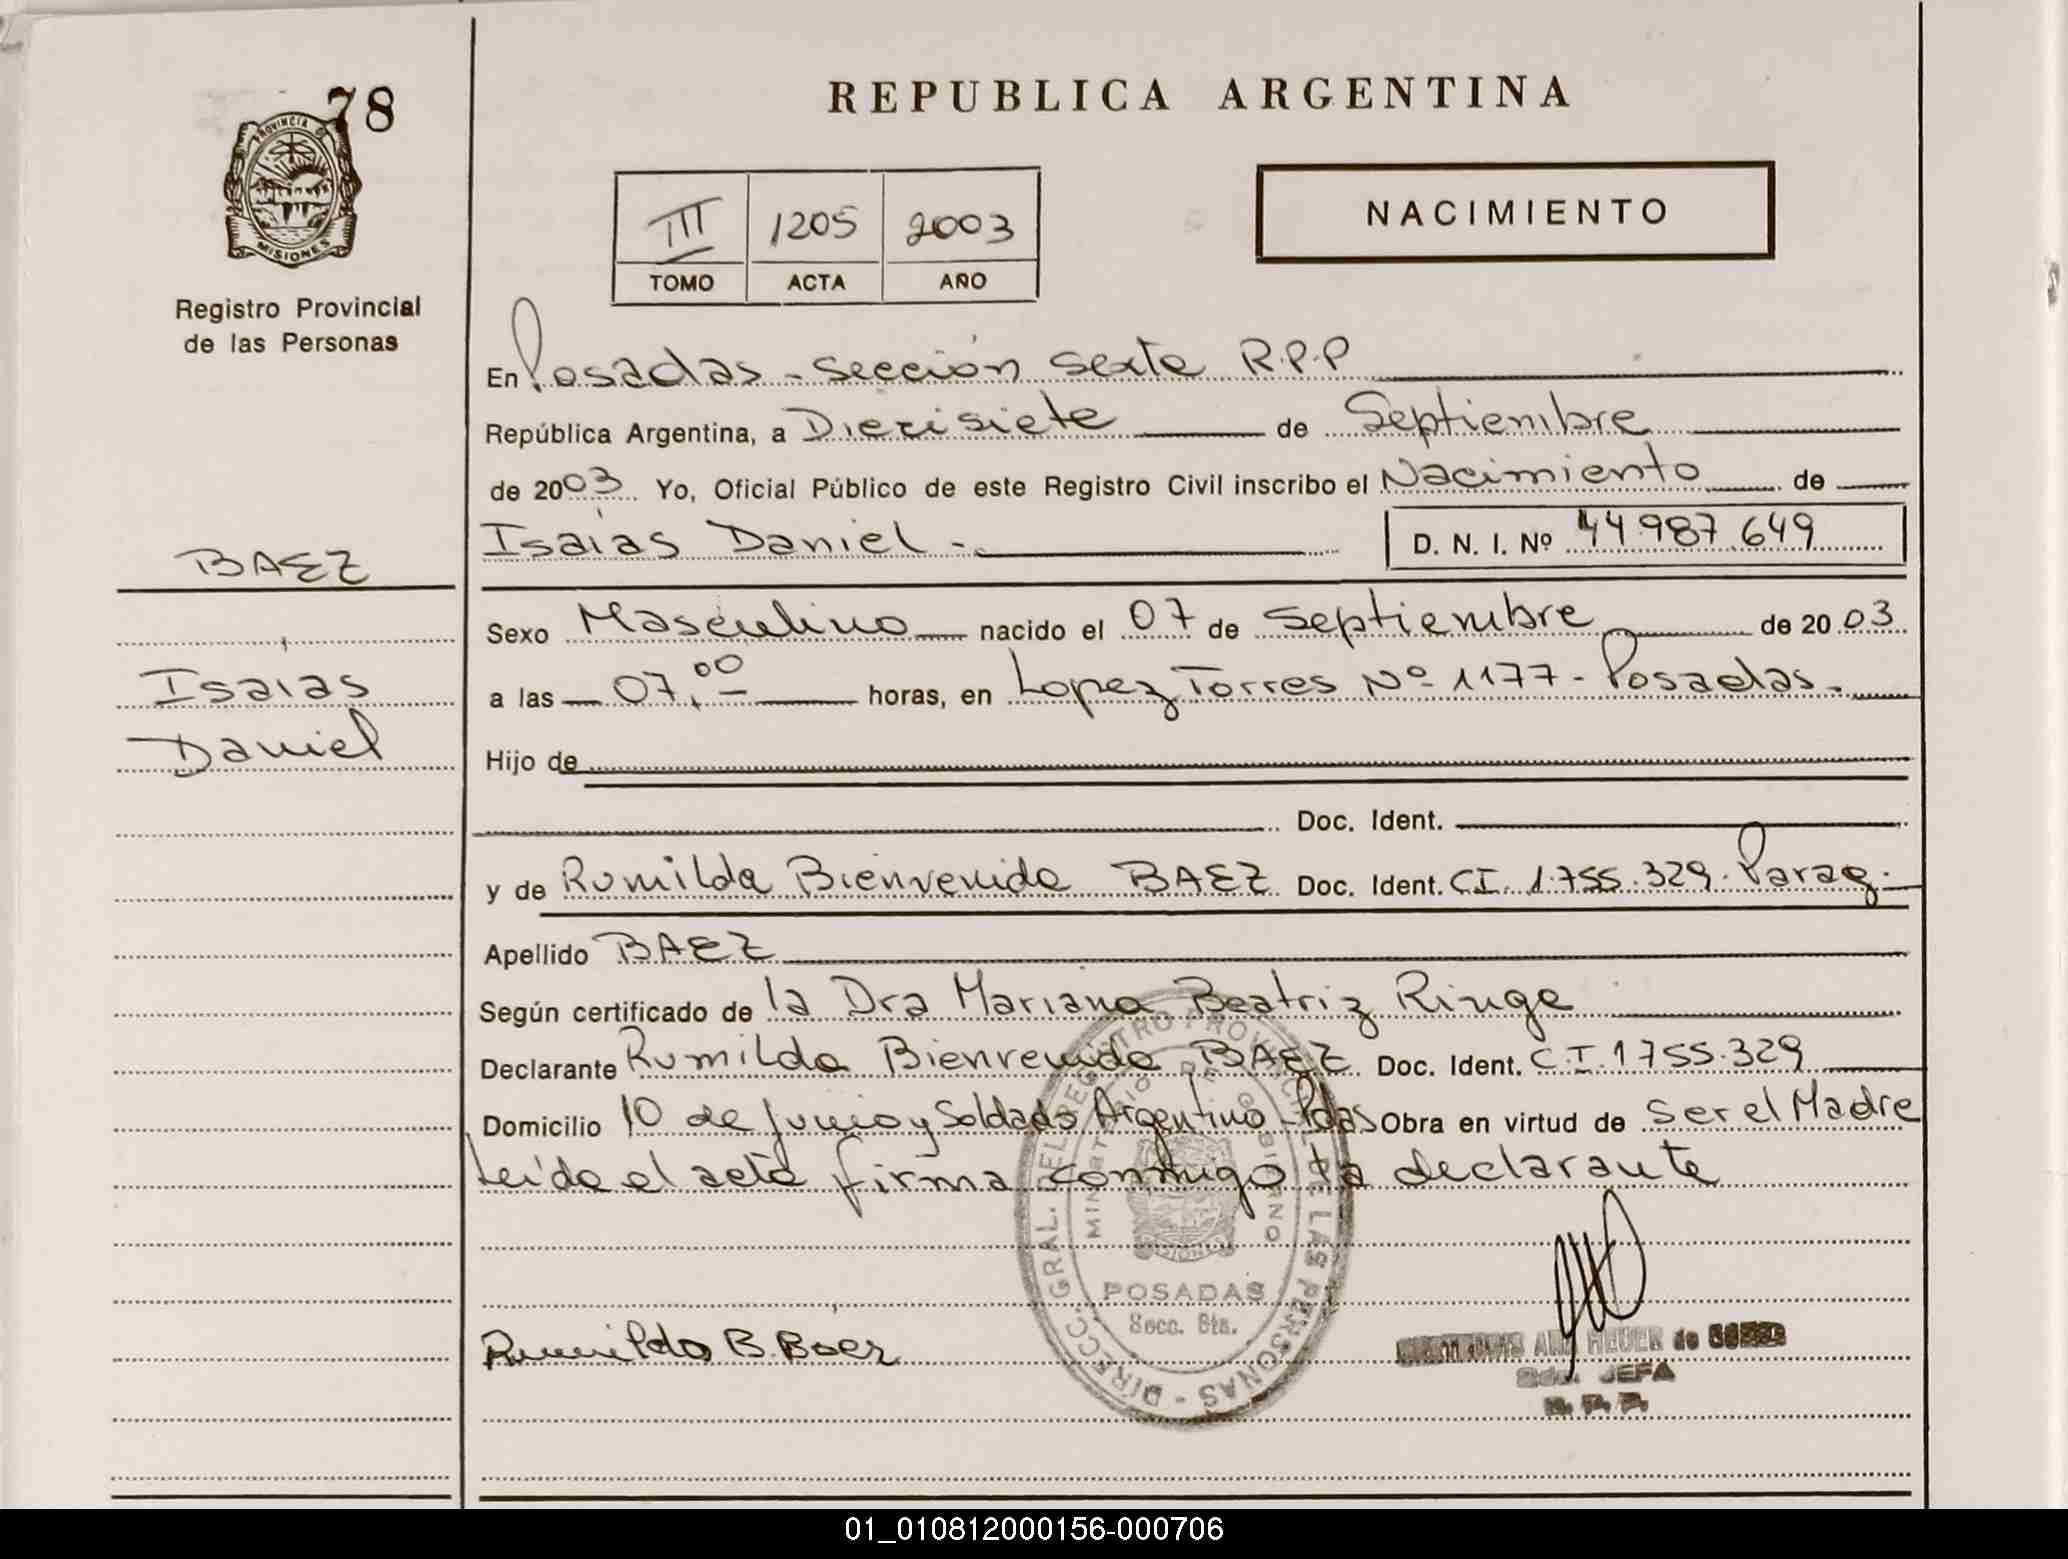 78
PROVINCIA DE
MISIONES
Registro Provincial
de las Personas
REPUBLICA ARGENTINA
III 1205 2003
TOMO ACTA AÑO
NACIMIENTO
En Posadas - sección sexta R.P.P
República Argentina, a Diecisiete de Septiembre
de 2003 Yo, Oficial Público de este Registro Civil inscribo el Nacimiento de
Isaías Daniel - D. N. I. Nº 44.987.649
BAEZ
Isaias
Daniel
Sexo Masculino nacido el 07 de septiembre de 2003
a las 07,00 horas, en Lopez Torres Nº 1177 - Posadas.
Hijo de
Doc. Ident.
y de Romilda Bienvenida BAEZ Doc. Ident. CI. 1.755.329. Parag.
Apellido BAEZ
Según certificado de la Dra Mariana Beatriz Ringe
Declarante Rumilda Bienvenida BAEZ Doc. Ident. C.I. 1755.329
Domicilio 10 de Junio y Soldado Argentino - Pdas Obra en virtud de ser el Madre
Leída el acta firma conmigo la declarante
DIRECC. GRAL. DEL REGISTRO PROVINCIAL DE LAS PERSONAS
MINISTERIO DE GOBIERNO
MISIONES
POSADAS
Secc. 6ta.
Rumilda B. Baez
ANA HEUER de
JEFA
R. P. P.
01_010812000156-000706